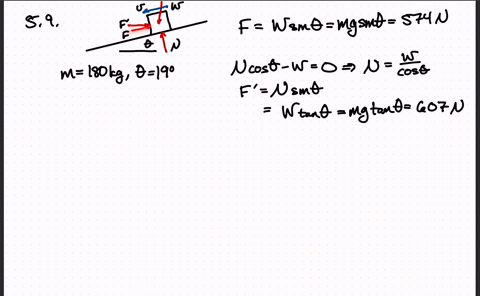 5.9.
v W
F'
F
θ N
m = 180 kg, θ = 19°
F = W sinθ = mg sinθ = 574 N
N cosθ - W = 0 ⇒ N = W/cosθ
F' = N sinθ
= W tanθ = mg tanθ = 607 N